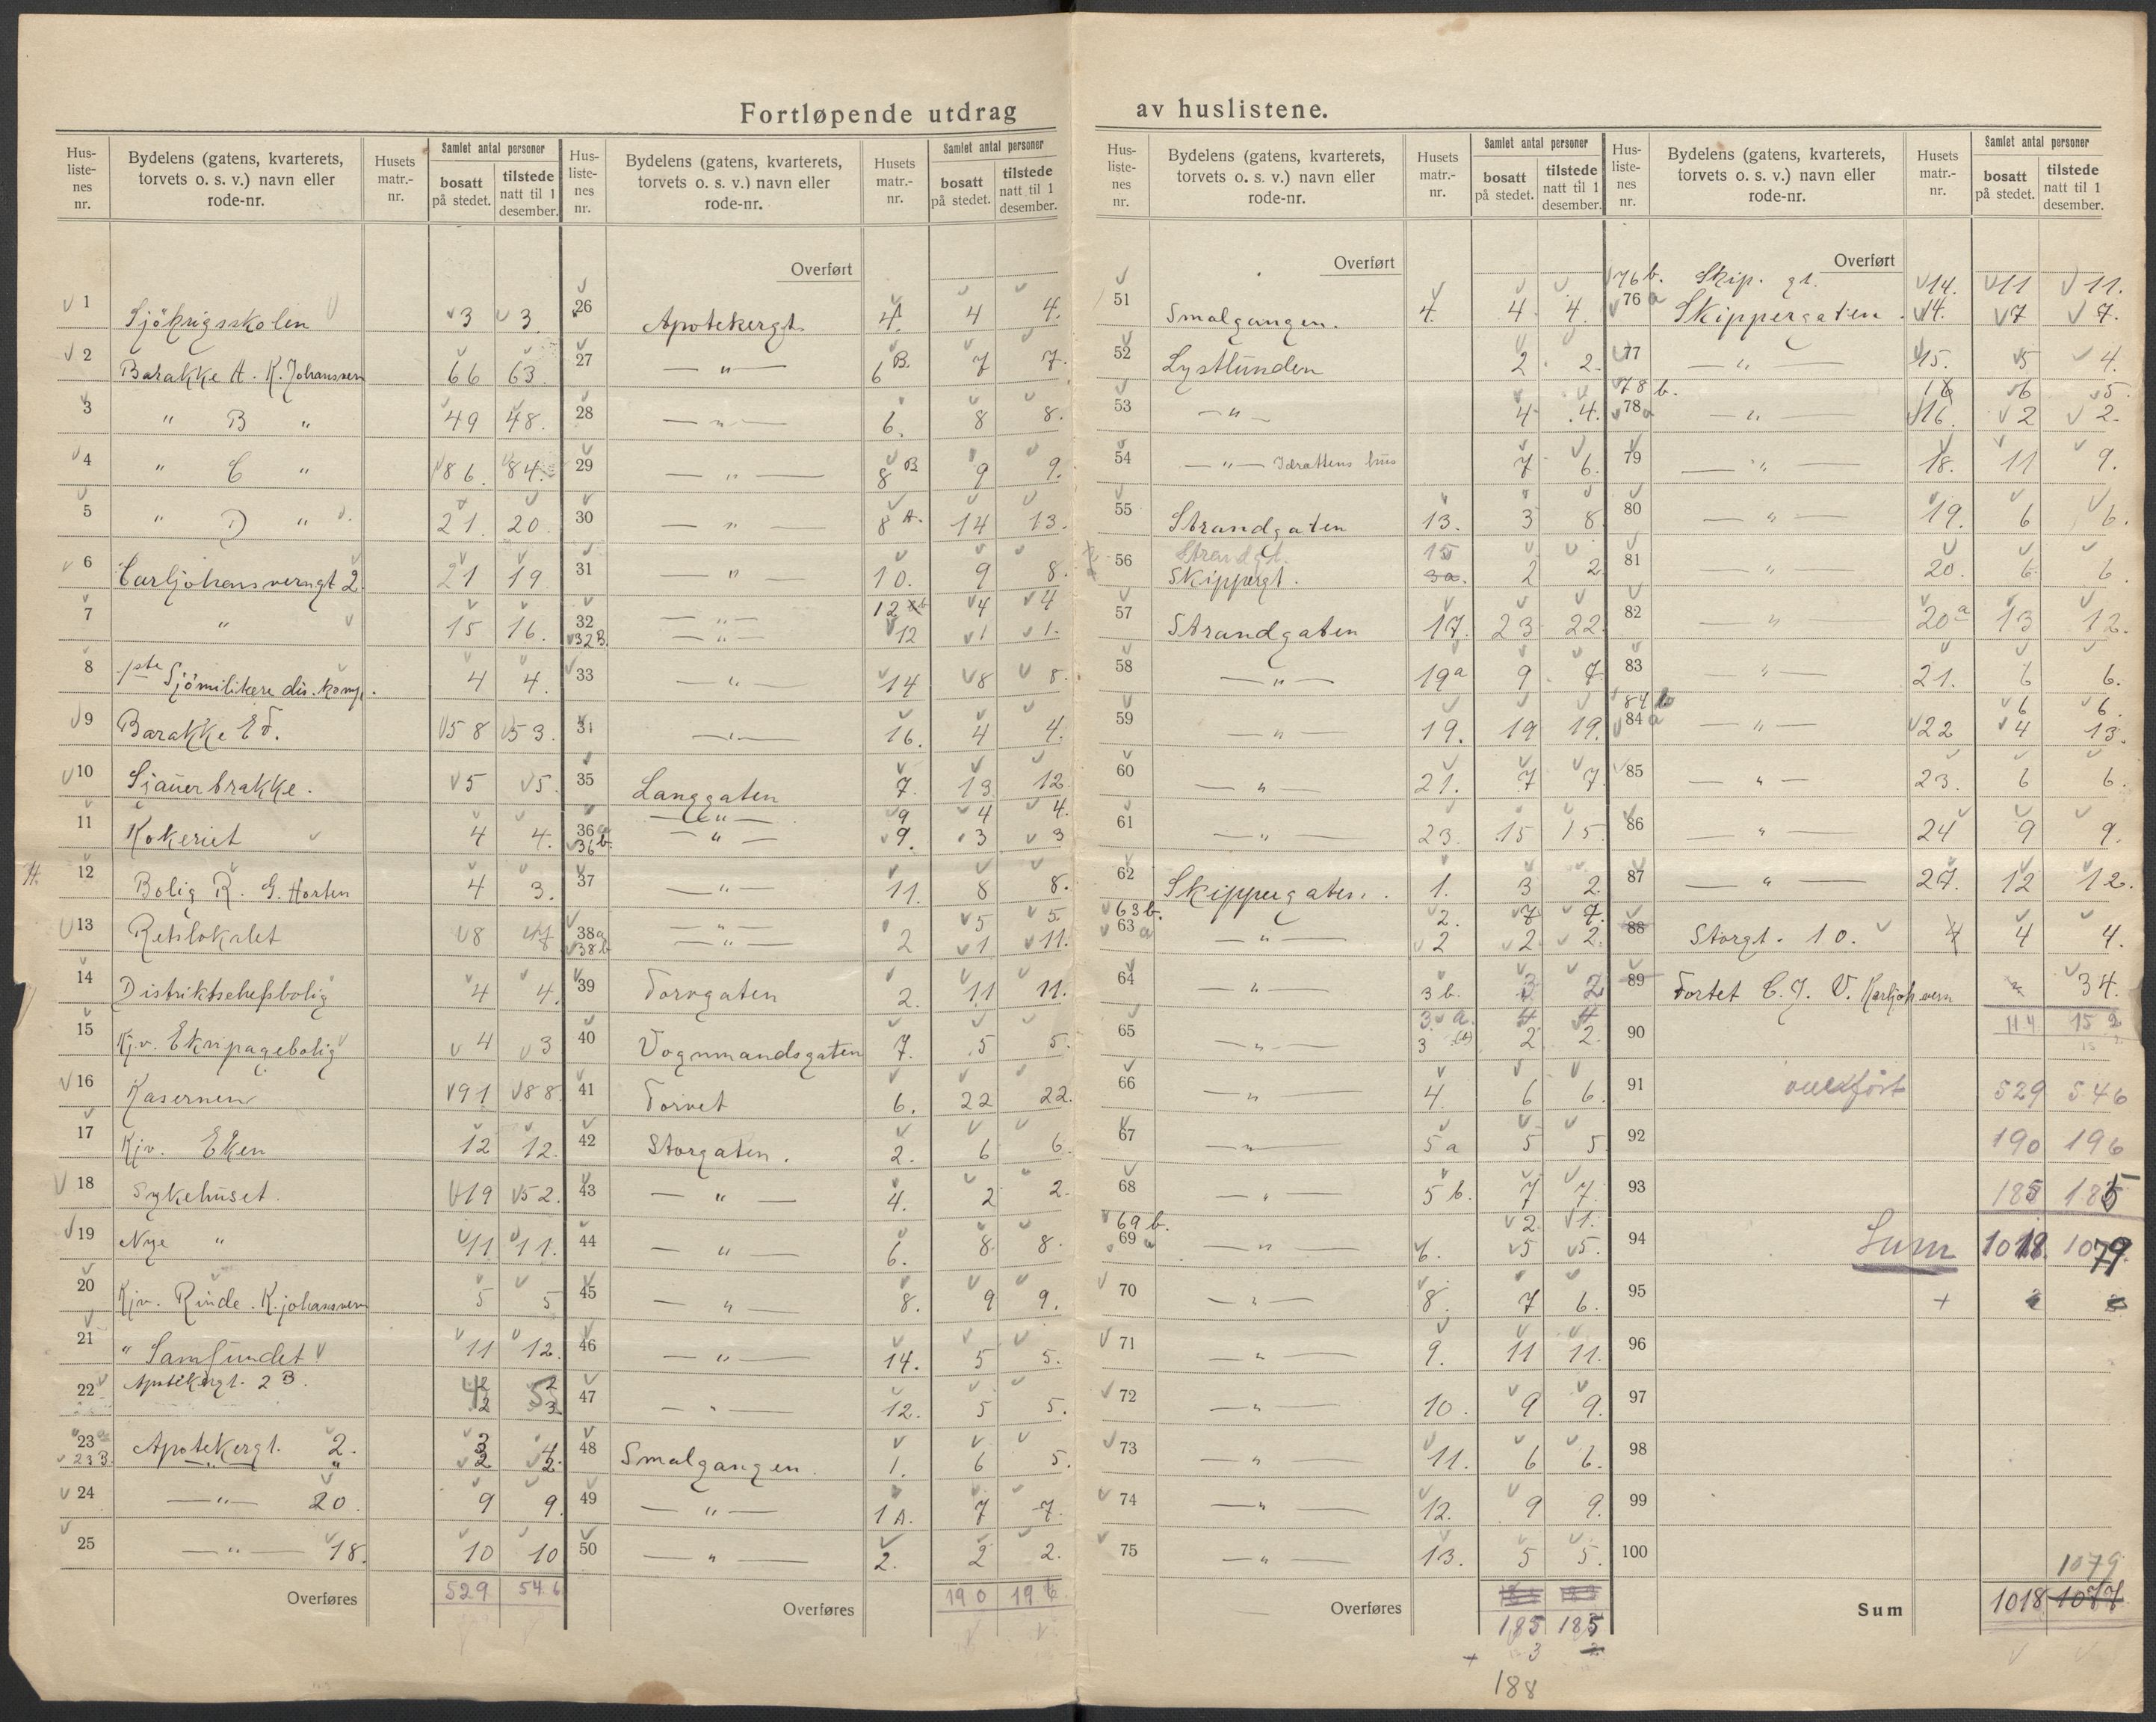 Fortløpende utdrag av huslistene.
Hus-liste-nes nr. Bydelens (gatens, kvarterets, torvets o. s. v.) navn eller rode-nr. Husets matr.-nr. Samlet antal personer bosatt på stedet. tilstede natt til 1 desember.
1 Sjökrigsskolen 3 3.
2 Barakke A. K. Johansvern 66 63.
3 " B " 49 48.
4 " C " 86. 84.
5 " D " 21. 20.
6 Carljohansverngt 2. 21 19.
7 " 15 16.
8 1ste Sjömilitære dis. komp. 4 4.
9 Barakke E 58 53.
10 Sjauerbrakke. 5 5.
11 Kokeriet 4 4.
H. 12 Bolig R. G. Horten 4 3.
13 Retslokalet 8
14 Distriktschefsbolig 4 4.
15 Kj.v. Ekvipagebolig 4 3
16 Kasernen 91. 88.
17 Kjv. Eken 12 12.
18 Sykehuset. 19 52.
19 Nye " 11 11.
20 Kjv. Rinde. K.johansvern 5 5
21 " Samfundet 11 12.
22 Apotekergt. 2 B.
23 a Apotekergt. 2. 3 4
23 B. " " 2 2.
24 — " — 20. 9 9.
25 — " — 18. 10 10
Overføres 529 546
Hus-liste-nes nr. Bydelens (gatens, kvarterets, torvets o. s. v.) navn eller rode-nr. Husets matr.-nr. Samlet antal personer bosatt på stedet. tilstede natt til 1 desember.
Overført
26 Apotekergt. 4. 4 4.
27 — " — 6 B. 7 7.
28 — " — 6. 8 8.
29 — " — 8 B 9 9.
30 — " — 8 A. 14 13.
31 — " — 10. 9 8.
32 — " — 12 b 4 4
32 B. — " — 12 1 1.
33 — " — 14 8 8.
34 — " — 16. 4 4.
35 Langgaten 7. 13 12
36 a — " — 9 4 4.
36 b. — " — 9. 3 3
37 — " — 11. 8 8.
38 a — " — 5 5.
38 b — " — 2 1 11.
39 Torvgaten 2. 11 11.
40 Vognmandsgaten 7. 5 5.
41 Torvet 6. 22 22.
42 Storgaten. 2. 6 6.
43 — " — 4. 2 2.
44 — " — 6. 8 8.
45 — " — 8. 9 9.
46 — " — 14. 5 5.
47 — " — 12. 5 5.
48 Smalgangen. 1. 6 5.
49 — " — 1 A. 7 7.
50 — " — 2. 2 2.
Overføres 190 196
Hus-liste-nes nr. Bydelens (gatens, kvarterets, torvets o. s. v.) navn eller rode-nr. Husets matr.-nr. Samlet antal personer bosatt på stedet. tilstede natt til 1 desember.
Overført
51 Smalgangen. 4. 4 4.
52 Lystlunden 2 2.
53 — " — 4 4.
54 — " — Idrættens hus 7 6.
55 Strandgaten 13. 3 8
56 Strandgt. 15
Skippergt. 3a. 2 2
57 Strandgaten 17. 23 22
58 — " — 19a 9 7
59 — " — 19. 19 19.
60 — " — 21. 7 7
61 — " — 23. 15 15
62 Skippergaten. 1. 3 2
63 b. 2. 7 7.
63 a — " — 2 2 2.
64 — " — 3 b. 3 2
65 3. a. 4 4
— " — 3 2 2.
66 — " — 4. 6 6.
67 — " — 5 a 5 5
68 — " — 5 b. 7 7.
69 b. 2. 1.
69 a — " — 6. 5 5.
70 — " — 8. 7 6.
71 — " — 9. 11 11.
72 — " — 10. 9 9.
73 — " — 11. 6 6.
74 — " — 12. 9 9.
75 — " — 13. 5 5.
Overføres
185 185
+ 3
188
Hus-liste-nes nr. Bydelens (gatens, kvarterets, torvets o. s. v.) navn eller rode-nr. Husets matr.-nr. Samlet antal personer bosatt på stedet. tilstede natt til 1 desember.
Overført
76 b. Skip. gt. 14. 11 11.
76 a Skippergaten. 14. 7 7.
77 — " — 15. 5 4.
78 b. 16 6 5.
78 a — " — 16. 2 2.
79 — " — 18. 11 9.
80 — " — 19. 6 6.
81 — " — 20. 6 6.
82 — " — 20a 13 12.
83 — " — 21. 6 6.
84 b 6 6.
84 a — " — 22 4 13.
85 — " — 23. 6 6.
86 — " — 24 9 9.
87 — " — 27. 12 12.
88 Storgt. 10. 4 4.
89 Fortet C. J. V. Karljoh.vern 34.
90 114 152
91 overfört 529 546
92 190 196
93 185 185
94 Sum 1018 1079.
95 +
96
97
98
99
100
1079
Sum 1018 1077